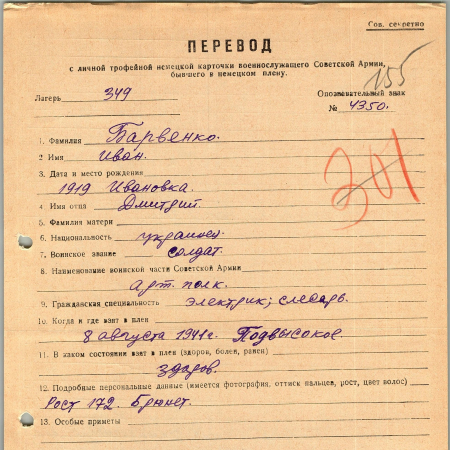 Сов. секретно
ПЕРЕВОД
с личной трофейной немецкой карточки военнослужащего Советской Армии,
бывшего в немецком плену.
155
Лагерь 349 Опознавательный знак
№ 4350.
301
1. Фамилия Барвенко.
2 Имя Иван.
3. Дата и место рождения
1919 Ивановка.
4. Имя отца Дмитрий.
5. Фамилия матери
6. Национальность украинец.
7. Воинское звание солдат.
8. Наименование воинской части Советской Армии
арт. полк.
9. Гражданская специальность электрик; слесарь.
10. Когда и где взят в плен
8 августа 1941 г. Подвысокое.
11. В каком состоянии взят в плен (здоров, болен, ранен)
здоров.
12. Подробные персональные данные (имеется фотография, оттиск пальцев, рост, цвет волос)
Рост 172. Брюнет.
13. Особые приметы